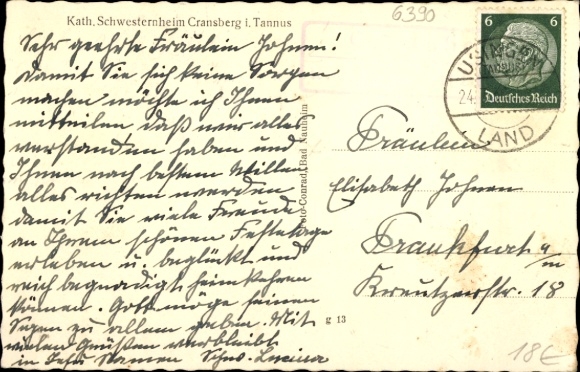 Kath. Schwesternheim Cransberg i. Tannus
6390
Sehr geehrte Fräulein Johnen!
Damit Sie sich keine Sorgen
machen möchte ich Ihnen
mitteilen daß wir alles
verstanden haben und
Ihnen nach bestem Willen
alles richten werden
damit Sie viele Freude
an Ihrem schönen Festtage
erleben u. beglückt und
reich begnadigt heimkehren
können. Gott möge seinen
Segen zu allem geben. Mit
vielen Grüßen verbleibt
in Jesu Namen Schw. Lucina
Foto-Conrad, Bad Nauheim
g 13
6 6
Deutsches Reich
USINGEN
24.
LAND
Fräulein
Elisabeth Johnen
Frankfurt a/m
Kreutzerstr. 18
18€